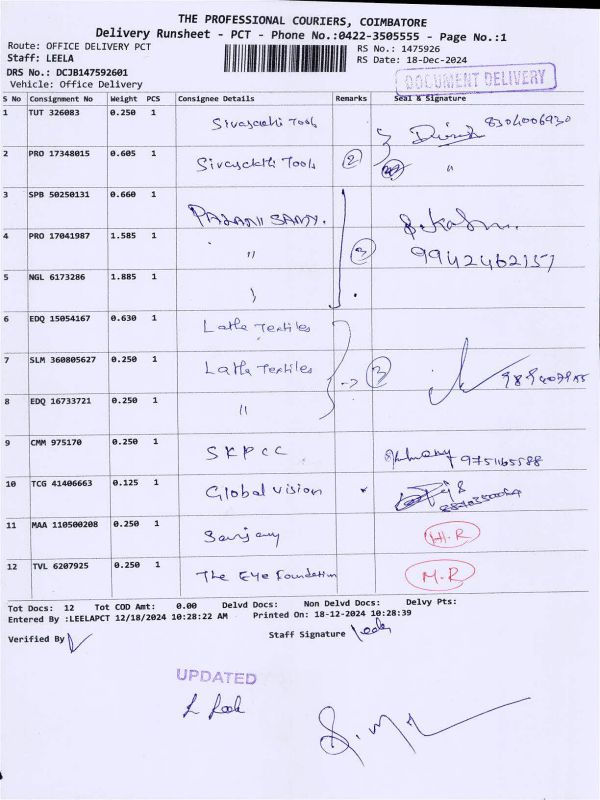 THE PROFESSIONAL COURIERS, COIMBATORE
Delivery Runsheet - PCT - Phone No.:0422-3505555 - Page No.:1
Route: OFFICE DELIVERY PCT
RS No.: 1475926
Staff: LEELA
RS Date: 18-Dec-2024
DRS No.: DCJB147592601
DOCUMENT DELIVERY
Vehicle: Office Delivery
S No Consignment No Weight PCS Consignee Details Remarks Seal & Signature
1 TUT 326083 0.250 1 Sivasakthi Tools 8304006930
2 PRO 17348015 0.605 1 Sivasakthi Tools 2 "
3 SPB 50250131 0.660 1 PALANISAMY.
4 PRO 17041987 1.585 1 " 3 9942462157
5 NGL 6173286 1.885 1
6 EDQ 15054167 0.630 1 Latha Textiles
7 SLM 360805627 0.250 1 Latha Textiles 3
8 EDQ 16733721 0.250 1 "
9 CMM 975170 0.250 1 SKPCC 9751165588
10 TCG 41406663 0.125 1 Global vision
11 MAA 110500208 0.250 1 H.R
12 TVL 6207925 0.250 1 The Eye Foundation M.R
Tot Docs: 12 Tot COD Amt: 0.00 Delvd Docs: Non Delvd Docs: Delvy Pts:
Entered By :LEELAPCT 12/18/2024 10:28:22 AM Printed On: 18-12-2024 10:28:39
Verified By
Staff Signature
UPDATED